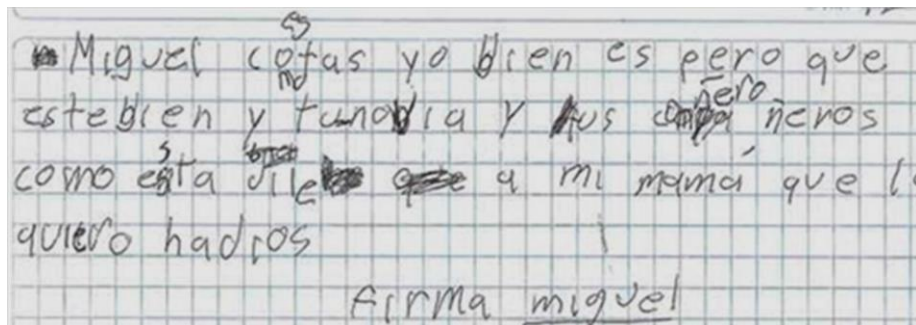 Miguel cofas yo bien es pero que
estebien y tunovia y tus compañeros
como esta dile a mi mamá que l
quiero hadios
firma miguel